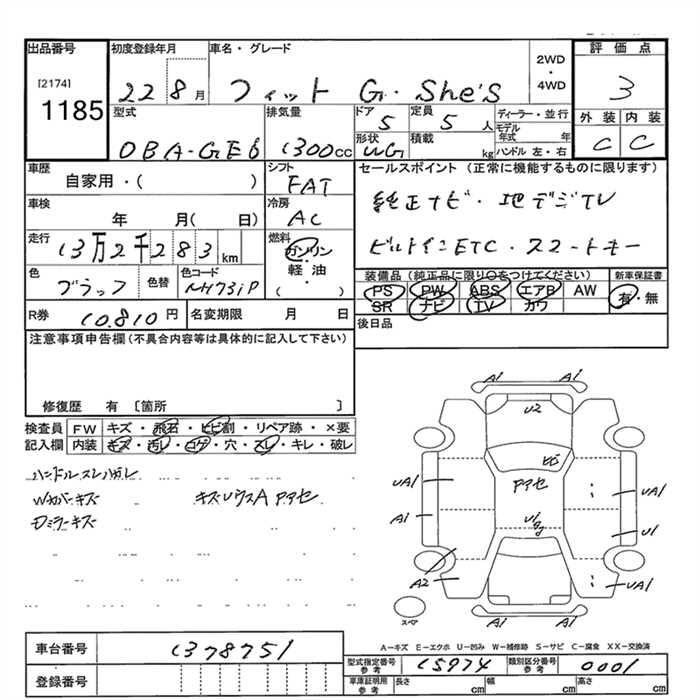 出品番号 初度登録年月 車名・グレード 評価点
[2174] 1185 22 8月 フィット G・She's 2WD・4WD 3
型式 排気量 ドア 定員 ディーラー・並行 外装 内装
DBA-GE6 1300cc 5 5人 モデル年式 年 C C
形状 積載 ハンドル 左・右
WG kg
車歴 シフト セールスポイント(正常に機能するものに限ります)
自家用・( ) FAT
純正ナビ・地デジTV
車検 冷房
年 月( 日) AC
ビルトインETC・スマートキー
走行 燃料
13万2千283km ガソリン・軽油 ( )
装備品(純正品に限り○をつけてください) 新車保証書
色 色替 色コード
ブラック NH731P
PS PW ABS エアB AW 有・無
SR ナビ TV カワ
R券 10,810円 名変期限 月 日 後日品
注意事項申告欄(不具合内容等は具体的に記入して下さい)
修復歴 有 〔箇所 〕
検査員記入欄
FW キズ・飛石・ヒビ割・リペア跡・×要
内装 キズ・汚レ・コゲ・穴・スレ・キレ・破レ
ハンドルスレハガレ
Wカバーキズ
Dミラーキズ
A1 A1
U2
ヒビ
Pアセ
UA1 UA1
A1 U1
A2 UA1
A1 A1
スペア
A-キズ E-エクボ U-凹み W-補修跡 S-サビ C-腐食 XX-交換済
車台番号 1378751
型式指定番号 参考 15974 類別区分番号 参考 0001
登録番号
車庫証明用 参考 長さ cm 幅 cm 高さ cm